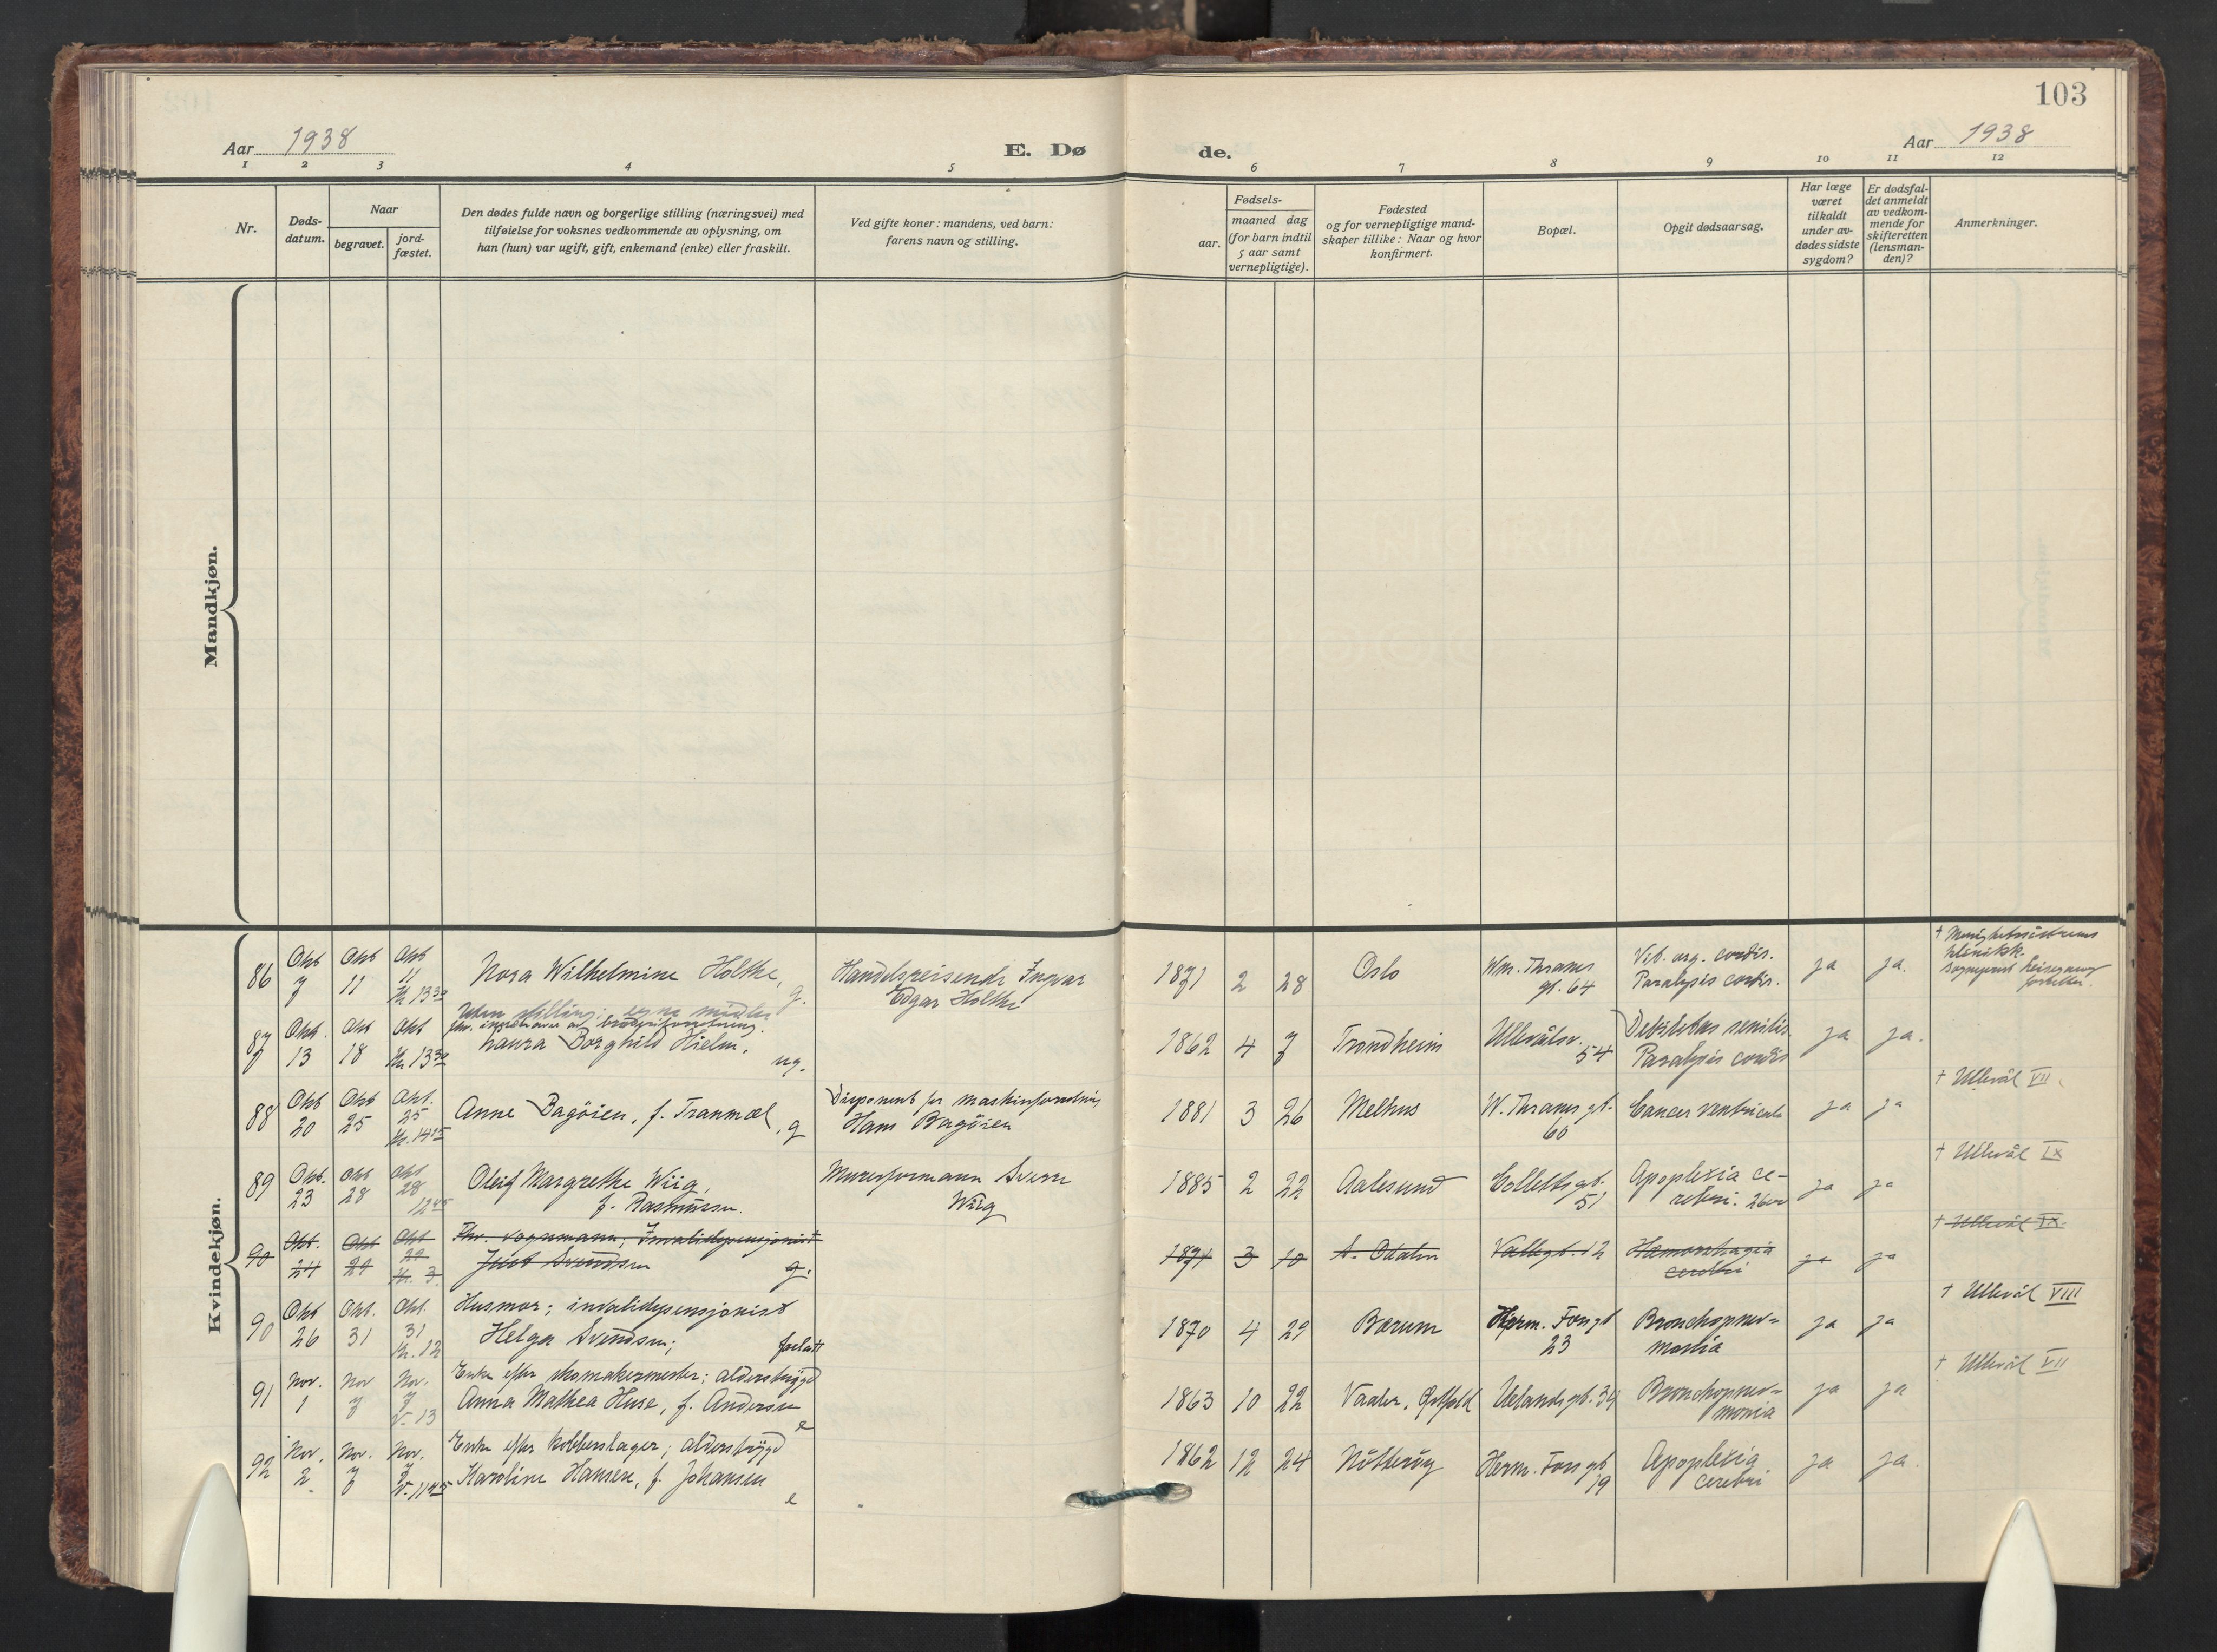 103
Aar 1938
E. Dø de.
Aar 1938
1 2 3 4 5 6 7 8 9 10 11 12
Nr.
Døds-
datum.
Naar
begravet.
jord-
fæstet.
Den dødes fulde navn og borgerlige stilling (næringsvei) med
tilføielse for voksnes vedkommende av oplysning, om
han (hun) var ugift, gift, enkemand (enke) eller fraskilt.
Ved gifte koner: mandens, ved barn:
farens navn og stilling.
Fødsels-
aar.
maaned dag
(for barn indtil
5 aar samt
vernepligtige).
Fødested
og for vernepligtige mand-
skaper tillike: Naar og hvor
konfirmert.
Bopæl.
Opgit dødsaarsag.
Har læge
været
tilkaldt
under av-
dødes sidste
sygdom?
Er dødsfal-
det anmeldt
av vedkom-
mende for
skifteretten
(lensman-
den)?
Anmerkninger.
Mandkjøn.
Kvindekjøn.
86 Okt 7 Okt 11 Okt 11 kl. 13 30
Nora Wilhelmine Holthe, g.
Handelsreisende Ingvar
Edgar Holthe
1871 2 28 Oslo
Wm. Thranes
gt. 64
Vit. org. cordis.
Paralysis cordis.
ja ja.
† Menighetssøstrenes
klinikk.
87 Okt. 13 Okt 18 Okt kl. 13 30
Uten stilling; egne midler
fhv. innehaver av broderiforretning.
Laura Borghild Hielm, ug.
1862 4 7 Trondheim
Ullevålsv.
54
Debilitas senilis
Paralysis cordis
ja ja.
88 Okt 20 Okt 25 Okt. 25 kl. 14 15
Anne Bagöien, f. Tranmæl, g
Disponent for maskinforretning
Hans Bagöien
1881 3 26 Melhus
W. Thranes gt.
60
Cancer ventriculi
ja ja
† Ullevål VII
89 Okt. 23 Okt 28 Okt 28 12 45
Oleif Margrethe Wiig,
f. Rasmussen.
Murerformann Sverre
Wiig
1885 2 22 Aalesund
Collettsgt.
51
Apoplexia ce-
rebri.
ja ja
† Ullevål IX
90 Okt. 24 Okt 29 Okt 29 kl. 3
Fhv. vognmann; Invalidepensjonist
Svendsen g.
1871 3 10 S. Odalen
Vallegt. 12
Hæmorrhagia
cerebri
ja ja
† Ullevål IX.
90 Okt 26 Okt. 31 Okt. 31 kl. 12
Husmor; invalidepensjonist
Helga Svendsen; forlatt
1870 4 29 Bærum
Herm. Fossgt
23
Bronchopnev=
monia
ja ja
† Ullevål VIII
91 Nov. 1 Nov 7 Nov. 7 V. 13
Enke efter skomakermester; alderstrygd
Anna Mathea Huse, f. Andersen
e
1863 10 22 Vaaler, Østfold
Uelandsgt. 34
Bronchopnev=
monia
ja ja
† Ullevål VII
92 Nov. 2 Nov. 7 Nov. 7 V. 11 45
Enke efter kobberslager; alderstrygd
Karoline Hansen, f. Johansen
e
1862 12 24 Nötteröy
Herm. Fossgt
19
Apoplexia
cerebri
ja ja.